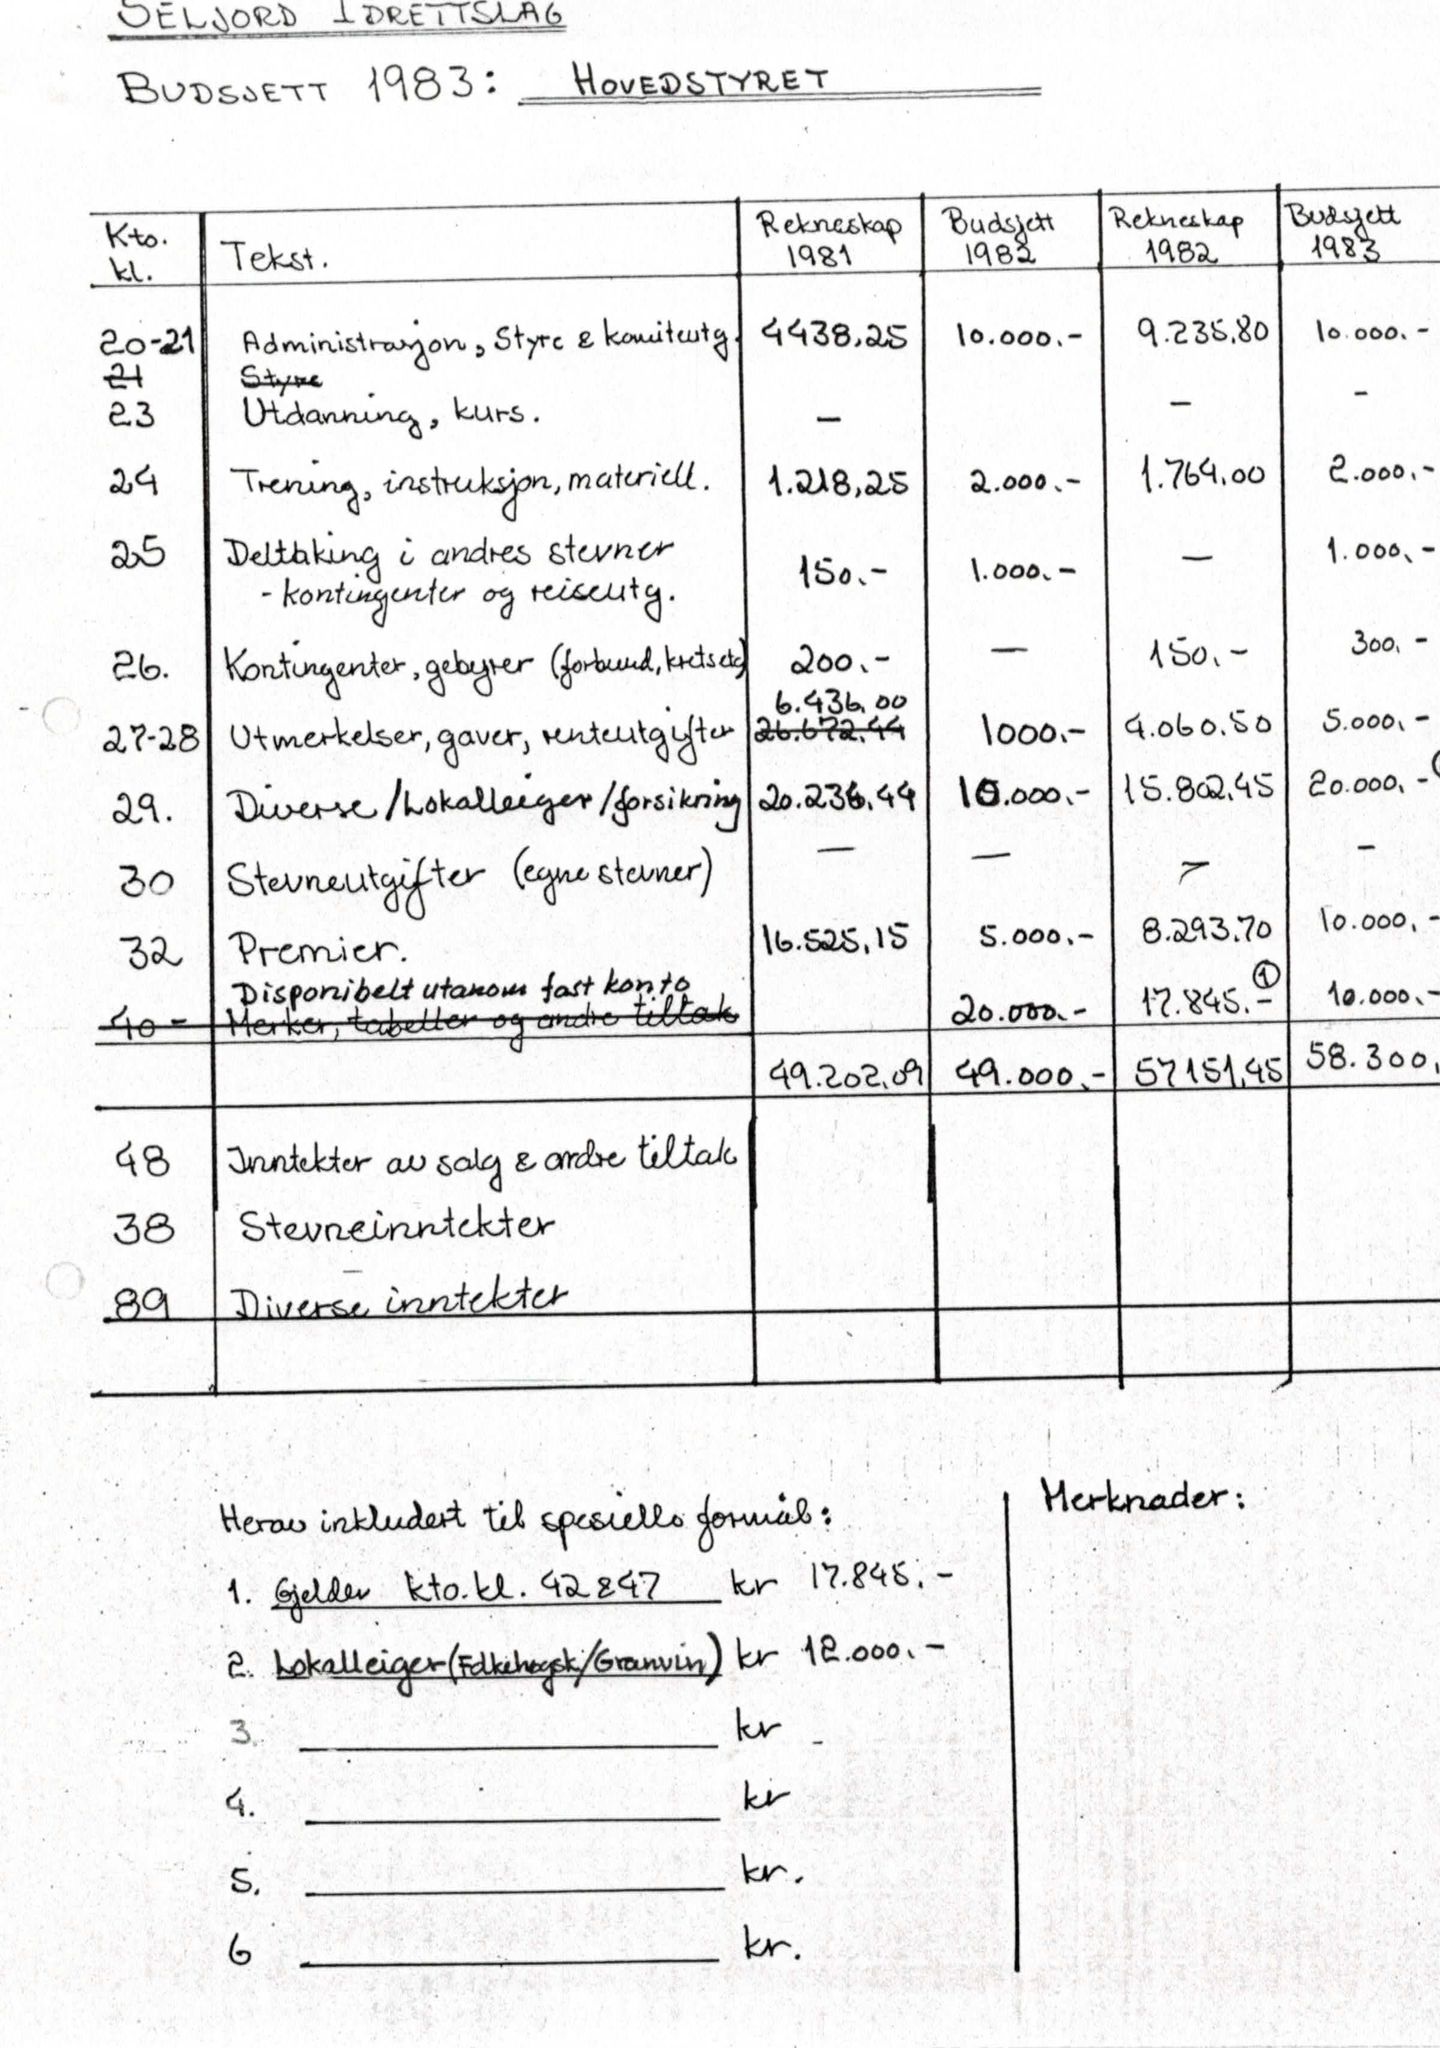 SELJORD IDRETTSLAG
BUDSJETT 1983: HOVEDSTYRET
Kto. kl. Tekst. Rekneskap 1981 Budsjett 1982 Rekneskap 1982 Budsjett 1983
20-21 Administrasjon, Styre & komiteutg. 4438,25 10.000.- 9.235,80 10.000.-
21 Styre
23 Utdanning, kurs. - - -
24 Trening, instruksjon, materiell. 1.218,25 2.000.- 1.764,00 2.000.-
25 Deltaking i andres stevner
- kontingenter og reiseutg. 150.- 1.000.- - 1.000.-
26. Kontingenter, gebyrer (forbund, krets etc) 200.- - 150.- 300.-
6.436,00
27-28 Utmerkelser, gaver, renteutgifter 26.672,44 1000.- 4.060.50 5.000.-
29. Diverse/Lokalleiger/forsikring 20.236,44 10.000.- 15.802,45 20.000.-
30 Stevneutgifter (egne stevner) - - - -
32 Premier. 16.525,15 5.000.- 8.293,70 10.000.-
Disponibelt utanom fast konto 1
40 - Merker, tabeller og andre tiltak 20.000.- 17.845.- 10.000.-
49.202,09 49.000.- 57151,45 58.300,
48 Inntekter av salg & andre tiltak
38 Stevneinntekter
89 Diverse inntekter
Herav inkludert til spesielle formål: Merknader:
1. Gjelder kto.kl. 42 & 47 kr 17.845.-
2. Lokalleiger (Folkehøgsk/Granvin) kr 12.000.-
3. kr -
4. kr
5. kr.
6 kr.